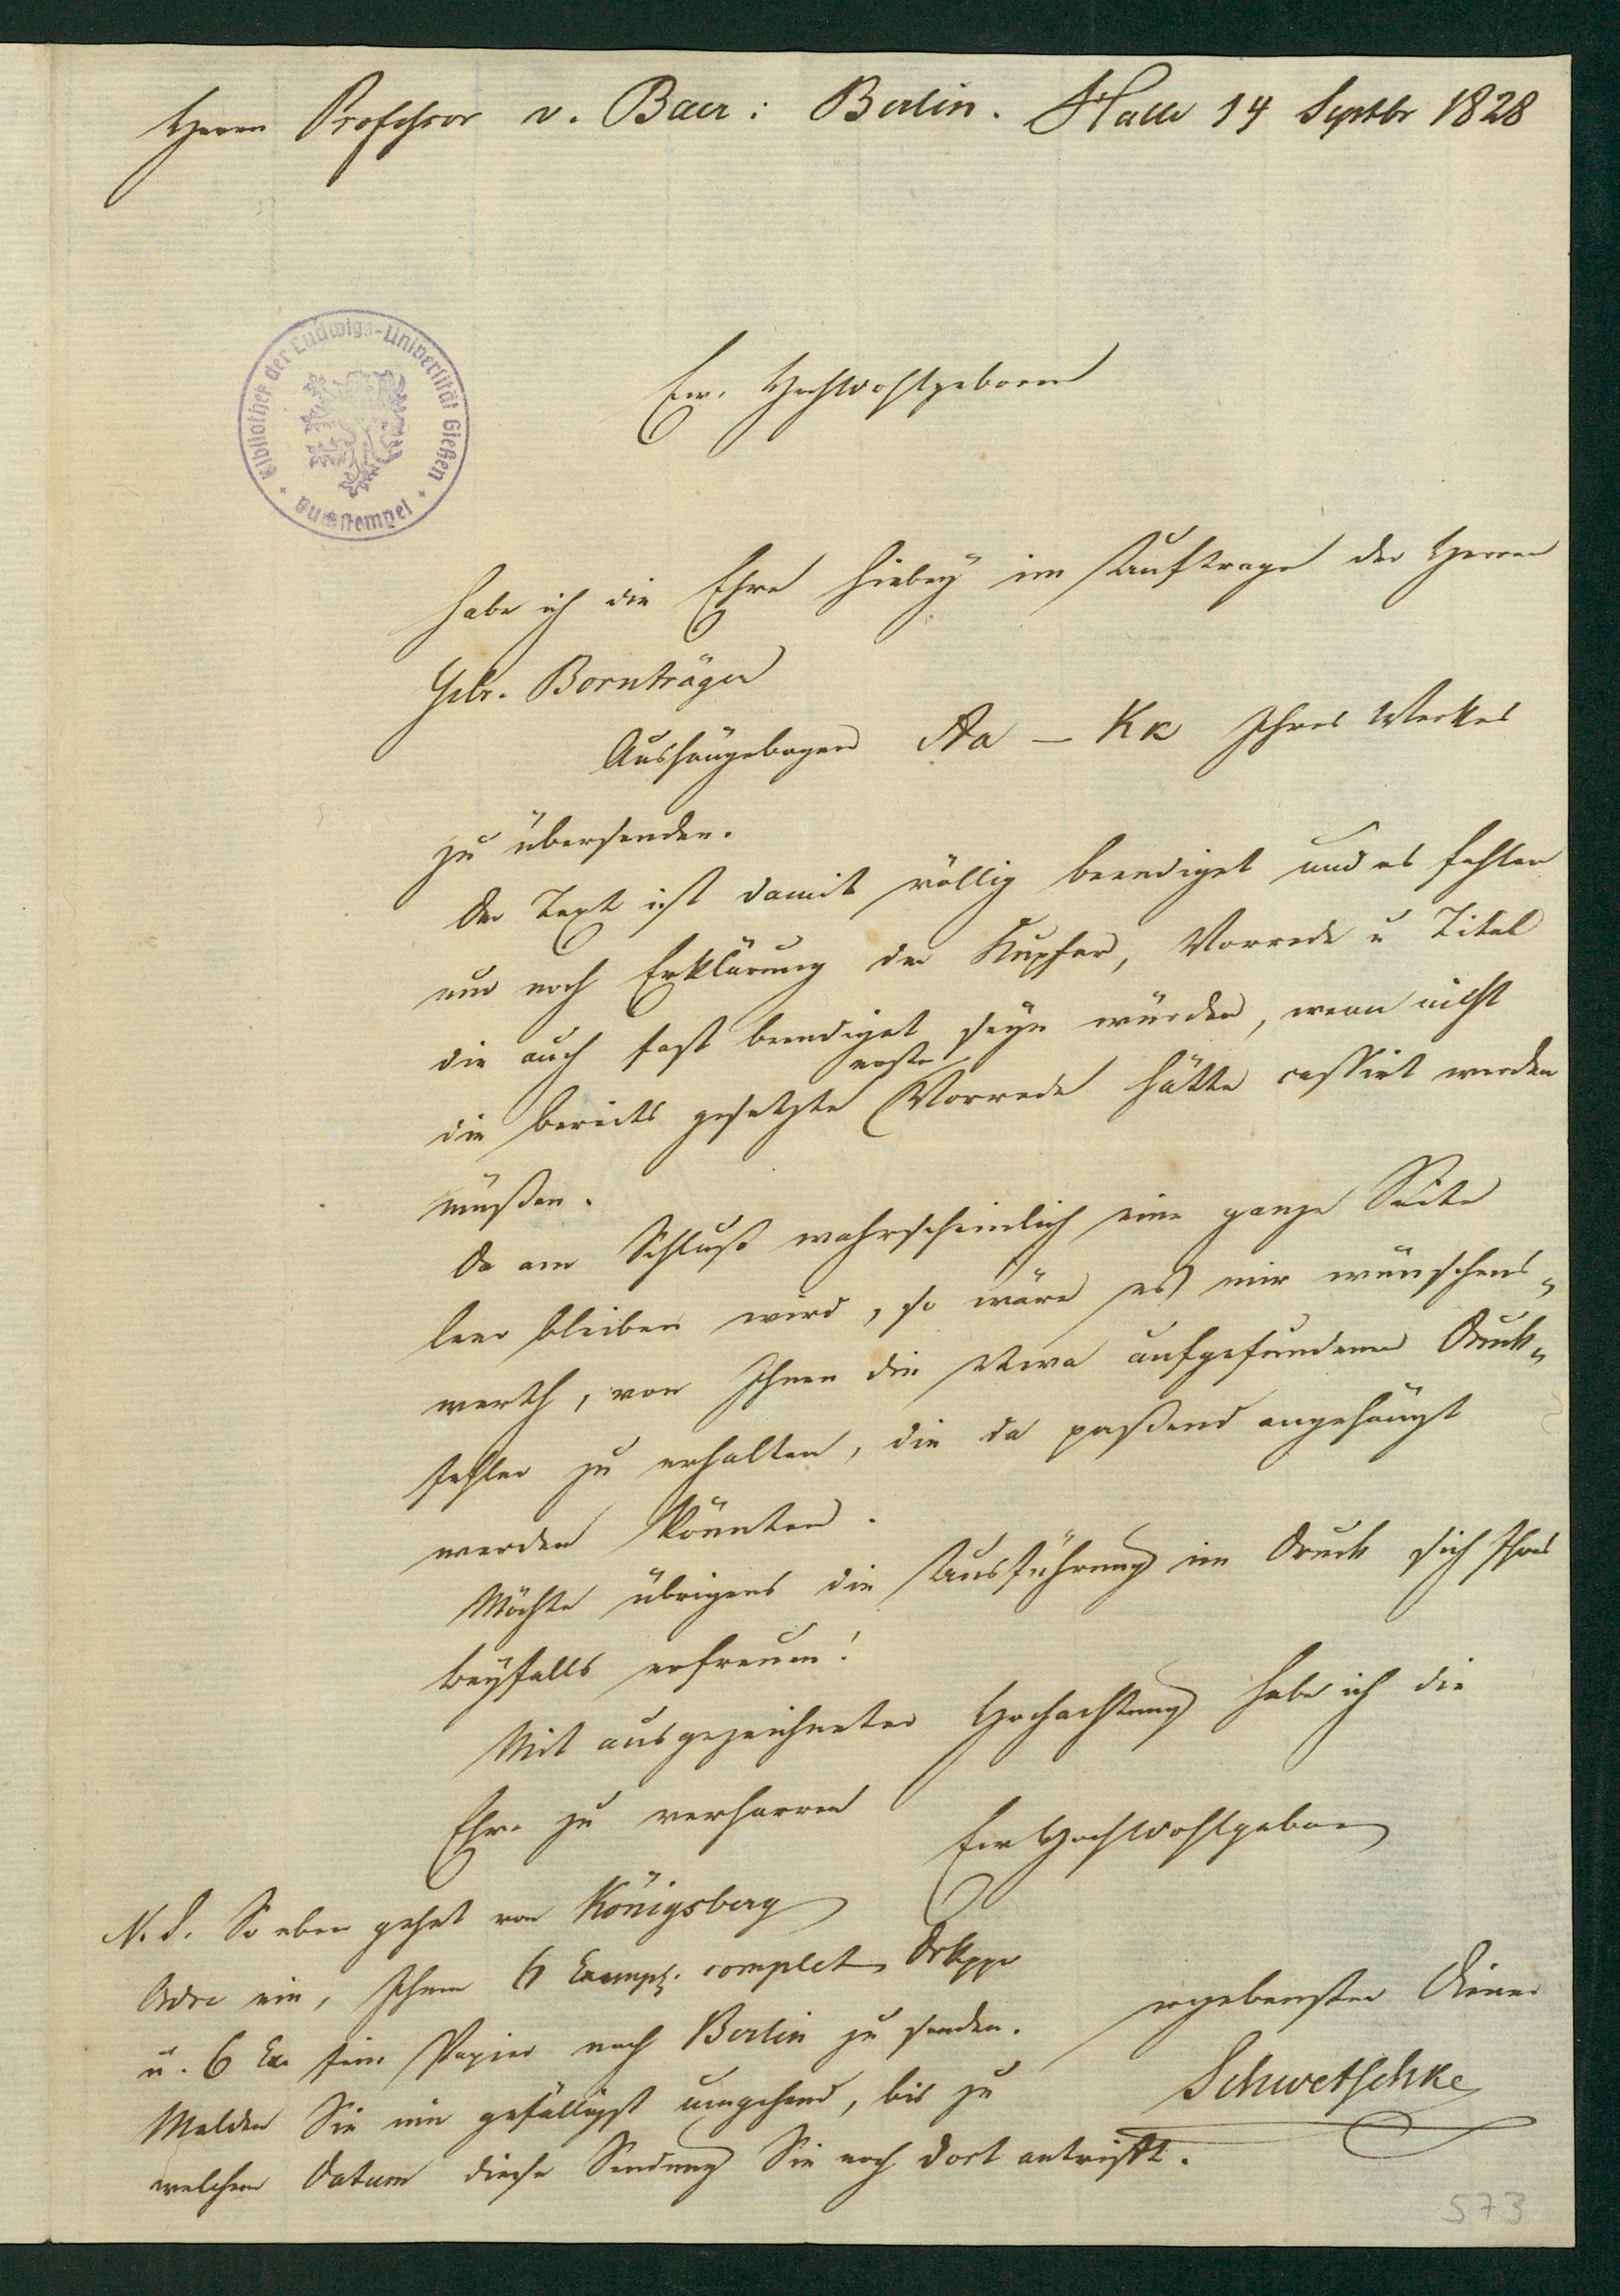 Herrn Professor v. Baer: Berlin. Halle 14 Septbr 1828
Bibliothek der Ludwigs-Universität Gießen
Buchstempel
Ew. Hochwohlgeboren
habe ich die Ehre hiebey im Auftrage der Herren
Gebr. Bornträger
Aushängebogen Aa – Kk Ihres Werkes
zu übersenden.
Der Text ist damit völlig beendiget und es fehlen
nur noch Erklärung der Kupfer, Vorrede u Titel
die auch fast beendiget seyn würden, wenn nicht
die bereits gesetzte erste Vorrede hätte cassirt werden
müßen.
Da am Schluß wahrscheinlich eine ganze Seite
leer bleiben wird, so wäre es mir wünschens-
werth, von Ihnen die etwa aufgefundenen Druck-
fehler zu erhalten, die da paßend angehängt
werden könnten.
Möchte übrigens die Ausführung im Druck sich Ihres
Beyfalls erfreuen!
Mit ausgezeichneter Hochachtung habe ich die
Ehre zu verharren
Ew Hochwohlgeboren
ergebenster Diener
Schwetschke
N. S. So eben gehet von Königsberg
Ordre ein, Ihnen 6 Exempl. complet Drkppr
u. 6 Ex fein Papier nach Berlin zu senden.
Melden Sie mir gefälligst umgehend, bis zu
welchem Datum diese Sendung Sie noch dort antrifft.
573